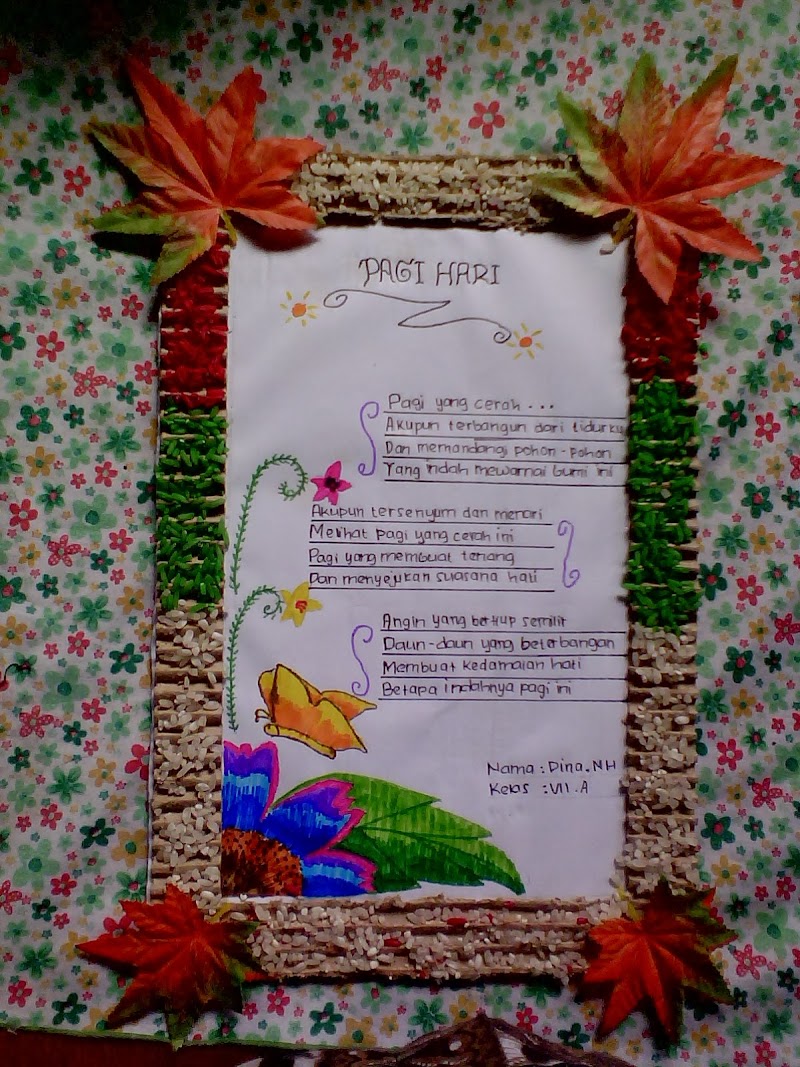 PAGI HARI
Pagi yang cerah...
Akupun terbangun dari tidurku
Dan memandangi pohon-pohon
Yang indah mewarnai bumi ini
Akupun tersenyum dan menari
Melihat pagi yang cerah ini
Pagi yang membuat tenang
Dan menyejukan suasana hati
Angin yang bertiup semilir
Daun-daun yang beterbangan
Membuat kedamaian hati
Betapa indahnya pagi ini
Nama : Dina.NH
Kelas : VII.A